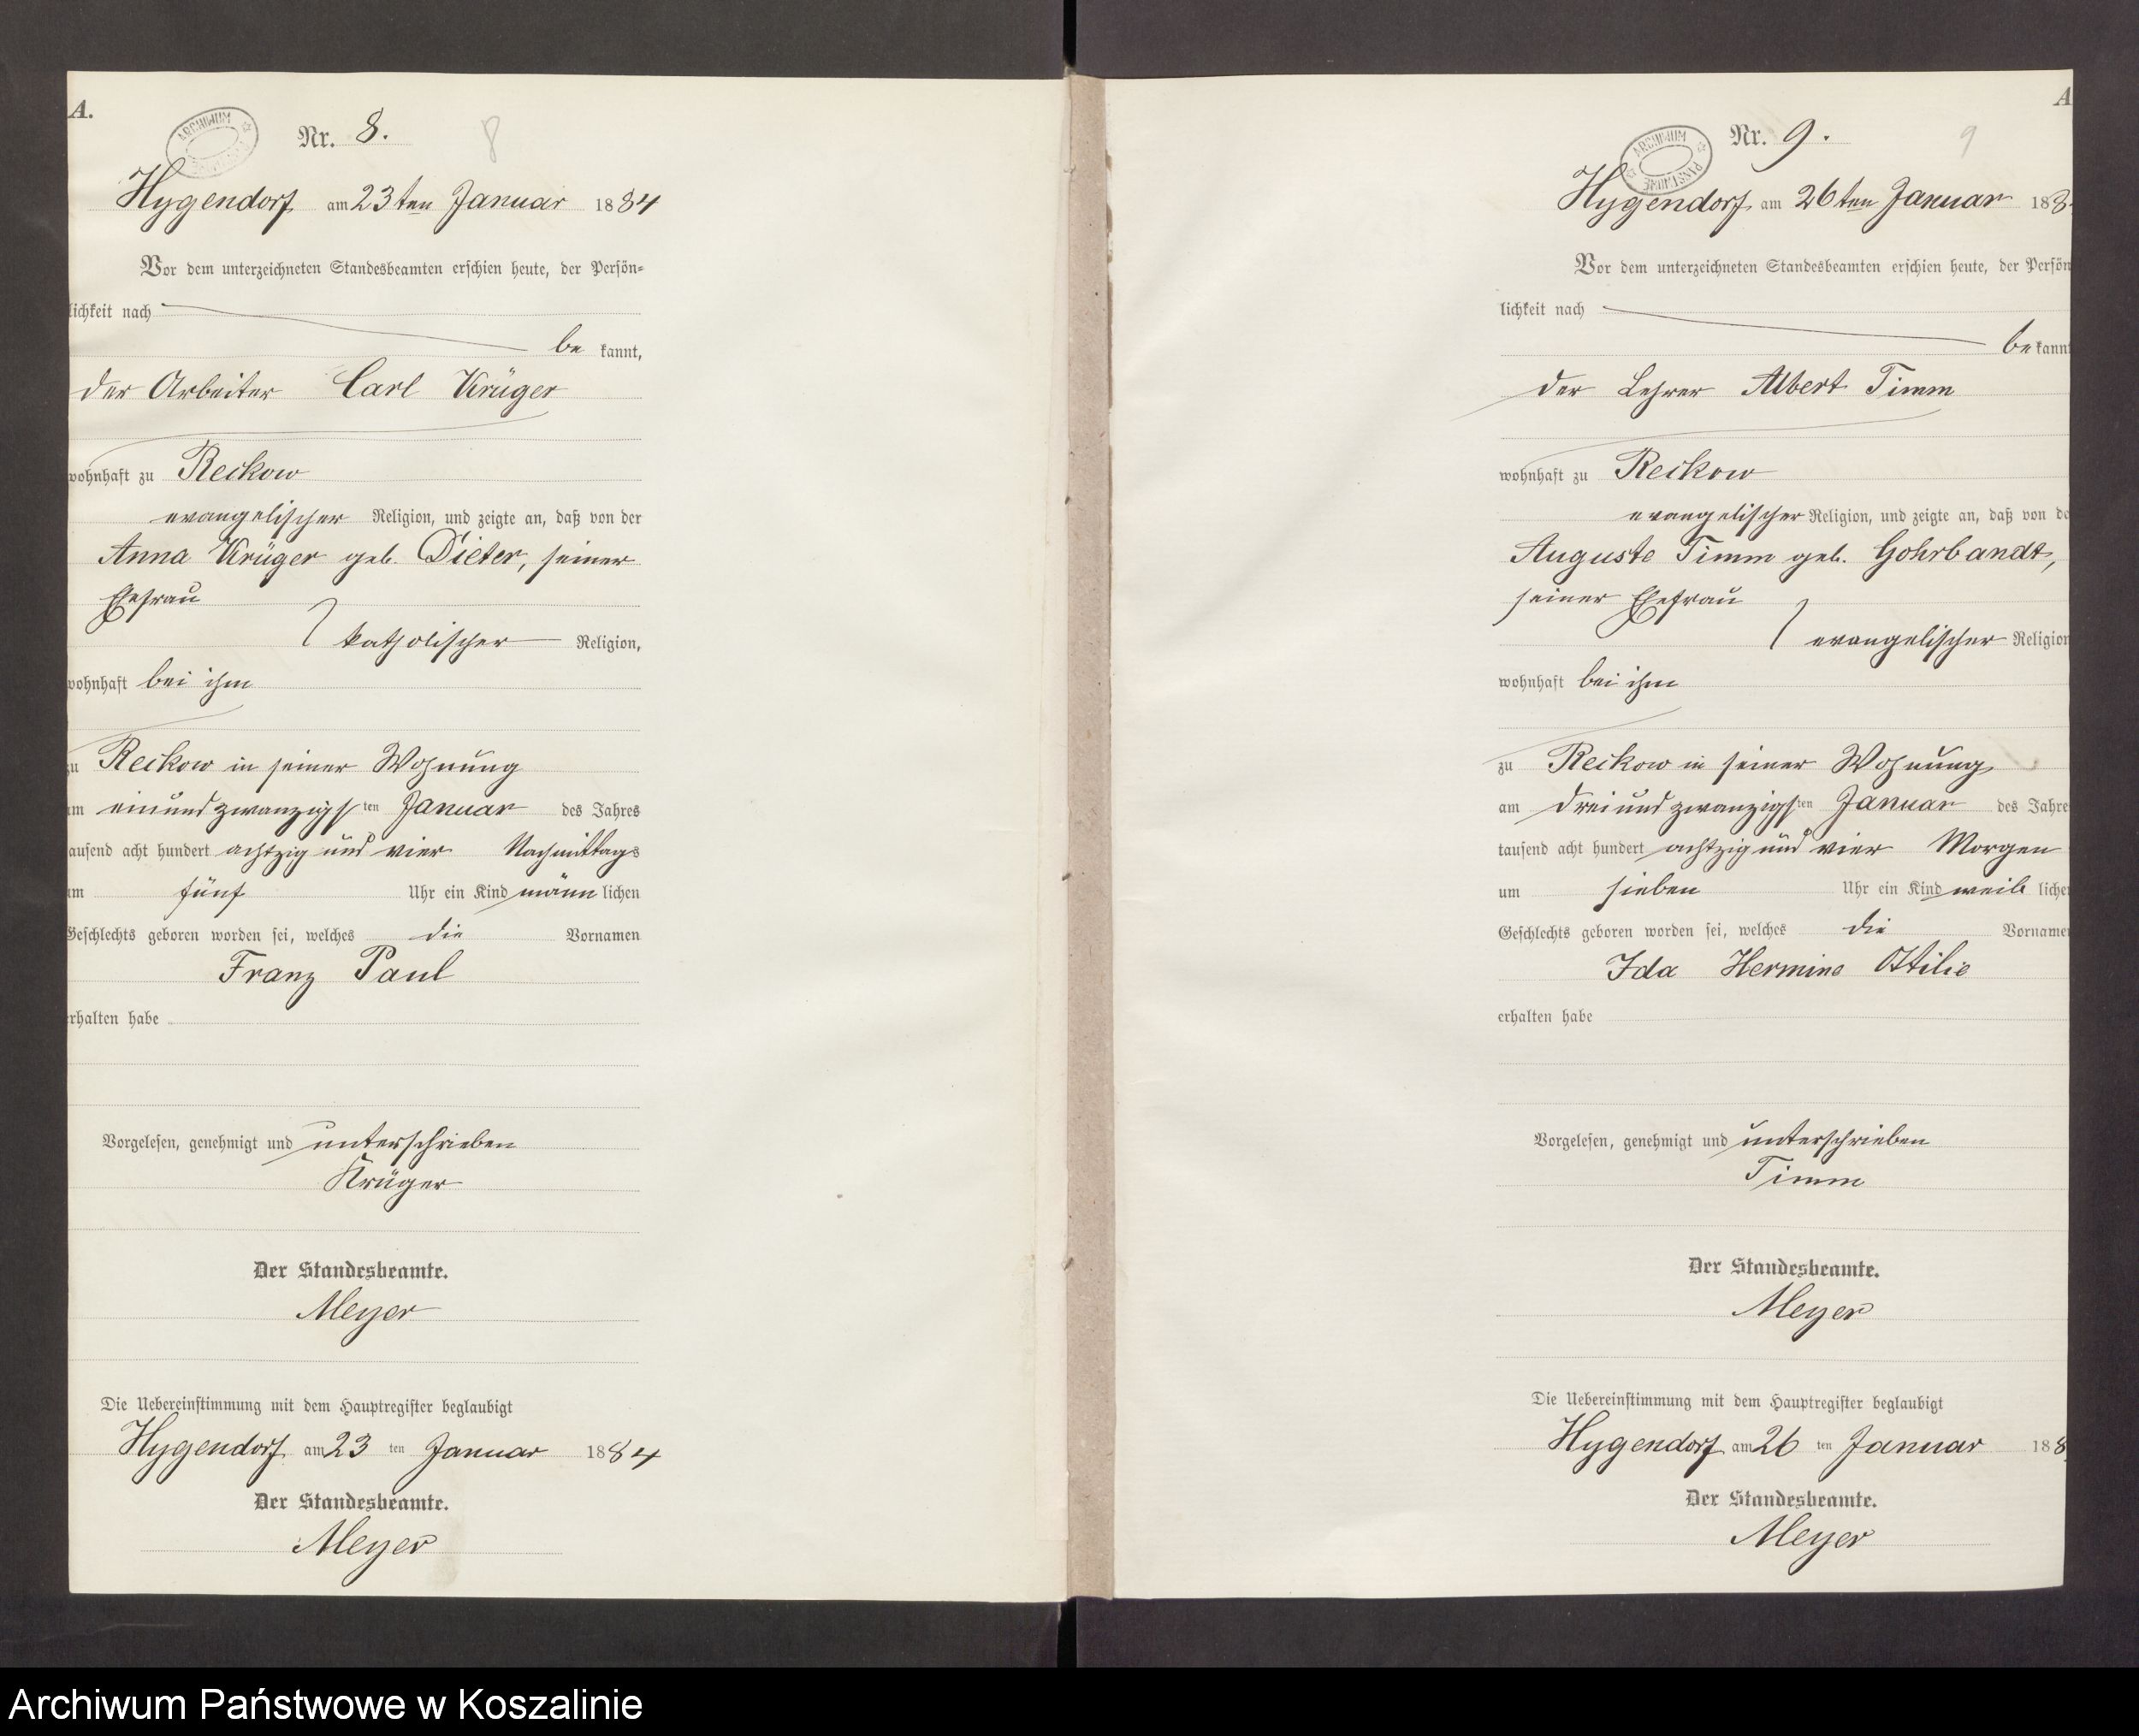 A.
ARCHIWUM
Nr. 8.
8
Hygendorf am 23ten Januar 1884
Vor dem unterzeichneten Standesbeamten erschien heute, der Persön=
lichkeit nach
be kannt,
der Arbeiter Carl Krüger
wohnhaft zu Reckow
evangelischer Religion, und zeigte an, daß von der
Anna Krüger geb. Dieter, seiner
Ehefrau
katholischer Religion,
wohnhaft bei ihm
zu Reckow in seiner Wohnung
am einundzwanzigsten Januar des Jahres
tausend acht hundert achtzig und vier Nachmittags
um fünf Uhr ein Kind männlichen
Geschlechts geboren worden sei, welches die Vornamen
Franz Paul
erhalten habe
Vorgelesen, genehmigt und unterschrieben
Krüger
Der Standesbeamte.
Meyer
Die Uebereinstimmung mit dem Hauptregister beglaubigt
Hygendorf am 23 ten Januar 1884
Der Standesbeamte.
Meyer
A
ARCHIWUM PAŃSTWOWE
Nr. 9.
9
Hygendorf am 26ten Januar 188
Vor dem unterzeichneten Standesbeamten erschien heute, der Persön
lichkeit nach
bekannt
der Lehrer Albert Timm
wohnhaft zu Reckow
evangelischer Religion, und zeigte an, daß von de
Auguste Timm geb. Gohrbandt,
seiner Ehefrau
evangelischer Religion
wohnhaft bei ihm
zu Reckow in seiner Wohnung
am dreiundzwanzigsten Januar des Jahre
tausend acht hundert achtzig und vier Morgen
um sieben Uhr ein Kind weib liche
Geschlechts geboren worden sei, welches die Vorname
Ida Hermine Ottilie
erhalten habe
Vorgelesen, genehmigt und unterschrieben
Timm
Der Standesbeamte.
Meyer
Die Uebereinstimmung mit dem Hauptregister beglaubigt
Hygendorf am 26 ten Januar 188
Der Standesbeamte.
Meyer
Archiwum Państwowe w Koszalinie